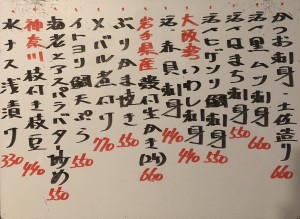 かつお刺身 土佐造り 660
ムツ刺身 660
はまち刺身 550
ヒゲソリ鯛刺身 550
大阪産 いわし刺身 440
赤貝刺身 440
岩手県産 殻付生かき(2ケ) 660
ぶりかま焼き 550
メバル煮付 770
イトヨリ鯛天ぷら 550
海老とアスパラバター炒め 550
神奈川 枝付き枝豆 440
水ナス浅漬け 330